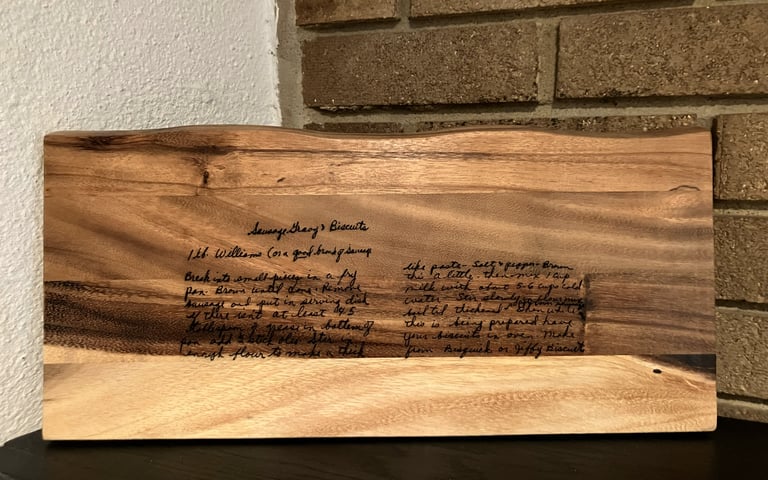 Sausage Gravy & Biscuits
1 lb. Williams (or a good brand of Sausage
Break into small pieces in a fry
pan. Brown until done. Remove
sausage and put in serving dish
if there isn't at least 4 or 5
tablespoons of grease in bottom of
pan add a little oleo. Stir in
enough flour to make a thick
like paste. Salt & pepper. Brown
this a little. then mix 1 cup
milk with about 5-6 cups cold
water. Stir slowly
boil til thickened.
this is being prepared have
your biscuits in oven. Make
from Bisquick or Jiffy Biscuit